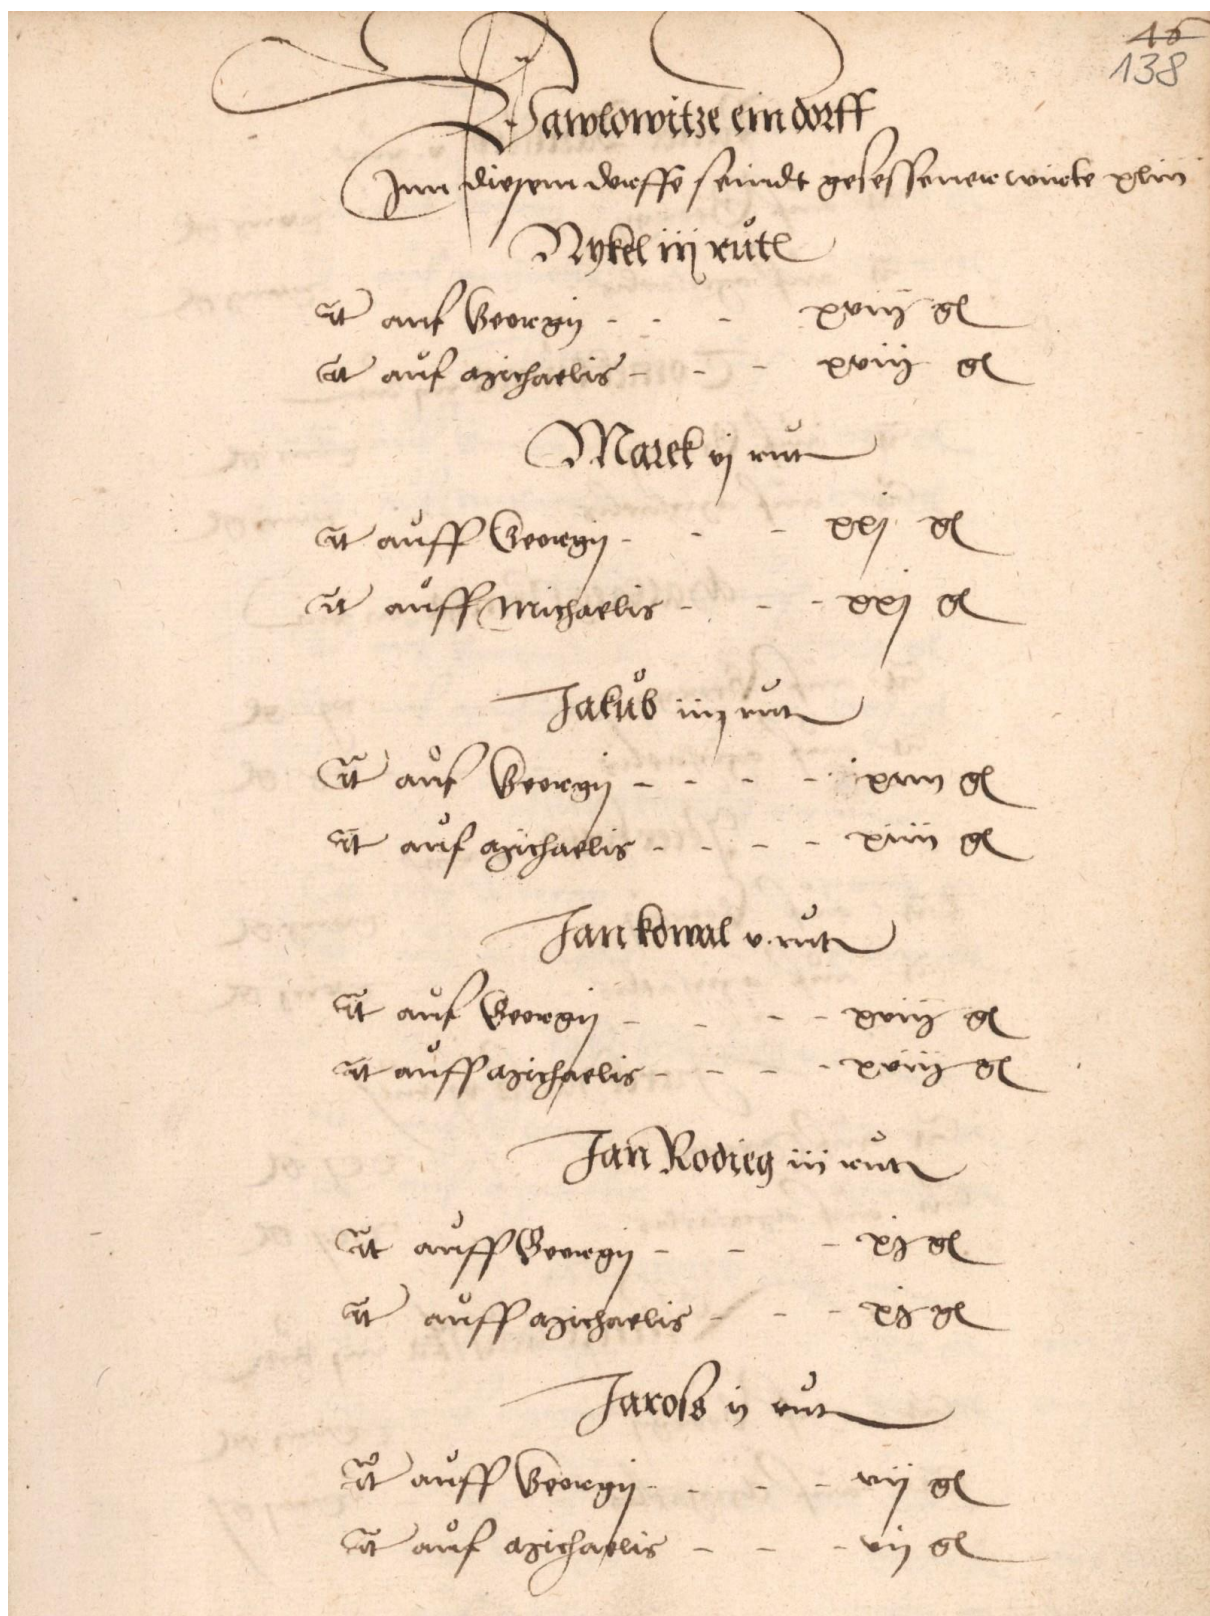 46
138
Pawlowitze ein dorff
Inn diesem dorffe seindt gesessener wirte xliii
Nykel iij růt
it auf Georgij - - - xviij gl
it aůf Michaelis - - - xviij gl
Marek vj růt
it aůff Georgij - - - xxj gl
it aůff Michaelis - - - xxj gl
Jakůb iiij růt
it aůf Georgij - - - - xiiii gl
it aůf Michaelis - - - - xiiii gl
Jan kowal v růt
it aůf Georgij - - - - xviij gl
it aůff Michaelis - - - - xviij gl
Jan Rodzeg iij růt
it aůff Georgij - - - gl
it aůff Michaelis - - - gl
Jaross ij růt
it aůff Georgij - - - - vij gl
it aůf Michaelis - - - vij gl